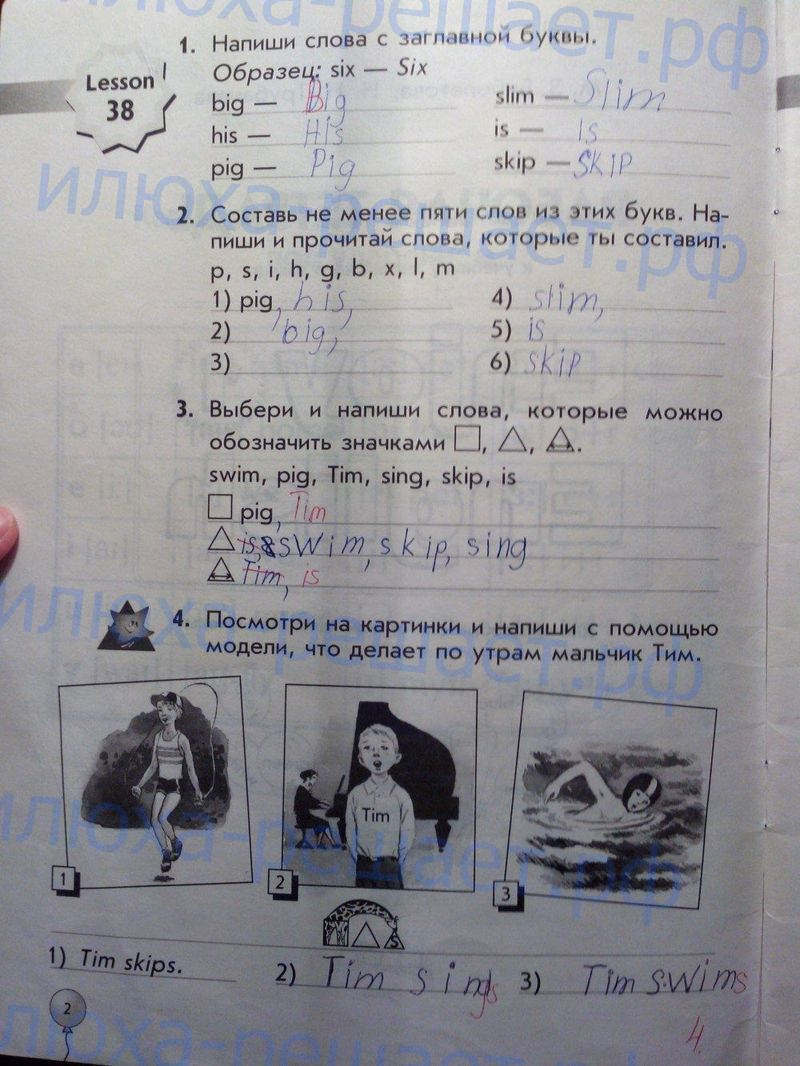 илюха-решает.рф
1. Напиши слова с заглавной буквы.
Lesson 38
Образец: six — Six
big — Big
slim — Slim
his — His
is — Is
pig — Pig
skip — Skip
илюха-решает.рф
2. Составь не менее пяти слов из этих букв. На-
пиши и прочитай слова, которые ты составил.
p, s, i, h, g, b, x, l, m
1) pig, his,
4) slim,
2) big,
5) is
3)
6) skip
3. Выбери и напиши слова, которые можно
обозначить значками □, △, △.
swim, pig, Tim, sing, skip, is
pig, Tim
is, swim, skip, sing
Tim, is
илюха-решает.рф
4. Посмотри на картинки и напиши с помощью
модели, что делает по утрам мальчик Тим.
Tim
илюха-решает.рф
1
2
3
s
1) Tim skips.
2) Tim sings
3) Tim swims
илюха-решает.рф
2
4